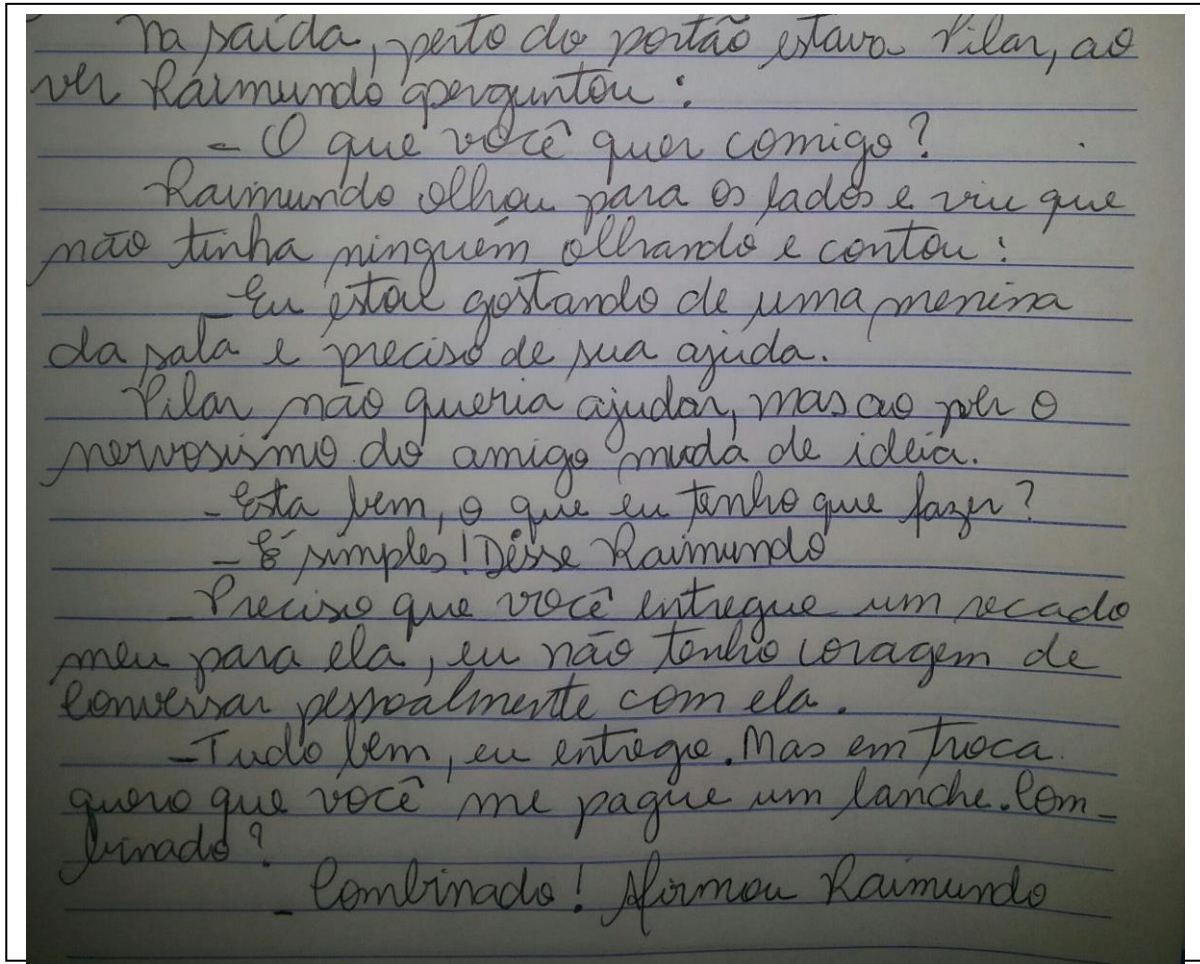 Na saída, perto do portão estava Pilar, ao
ver Raimundo perguntou:
- O que você quer comigo?
Raimundo olhou para os lados e viu que
não tinha ninguém olhando e contou:
- Eu estou gostando de uma menina
da sala e preciso de sua ajuda.
Pilar não queria ajudar, mas ao ver o
nervosismo do amigo muda de ideia.
- Esta bem, o que eu tenho que fazer?
- É simples! Disse Raimundo
- Preciso que você entregue um recado
meu para ela, eu não tenho coragem de
conversar pessoalmente com ela.
- Tudo bem, eu entrego. Mas em troca
quero que você me pague um lanche. Com-
binado?
- Combinado! Afirmou Raimundo